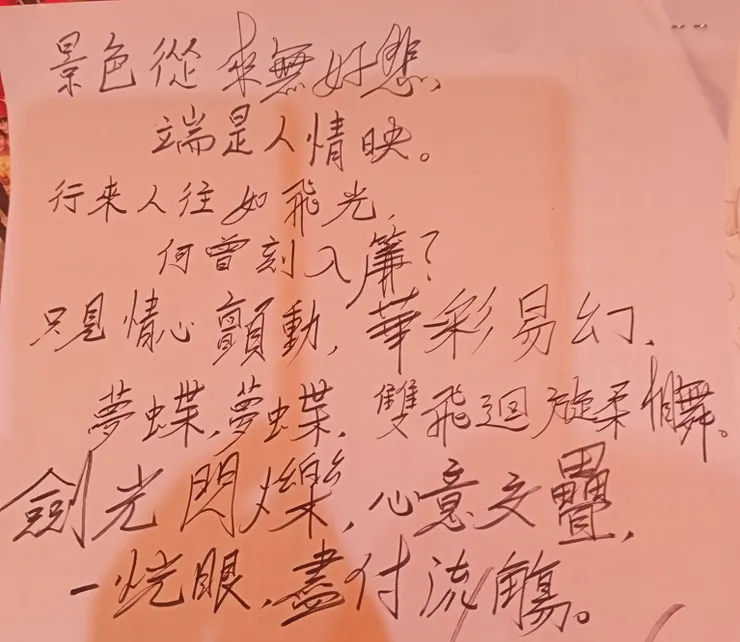 景色從來無好怨,
端是人情映。
行來人往如飛光,
何曾刻入簾?
只見情心顫動,華彩易幻,
夢蝶,夢蝶,雙飛迴旋柔情舞。
劍光閃爍,心意交疊,
一恍眼,盡付流觴。